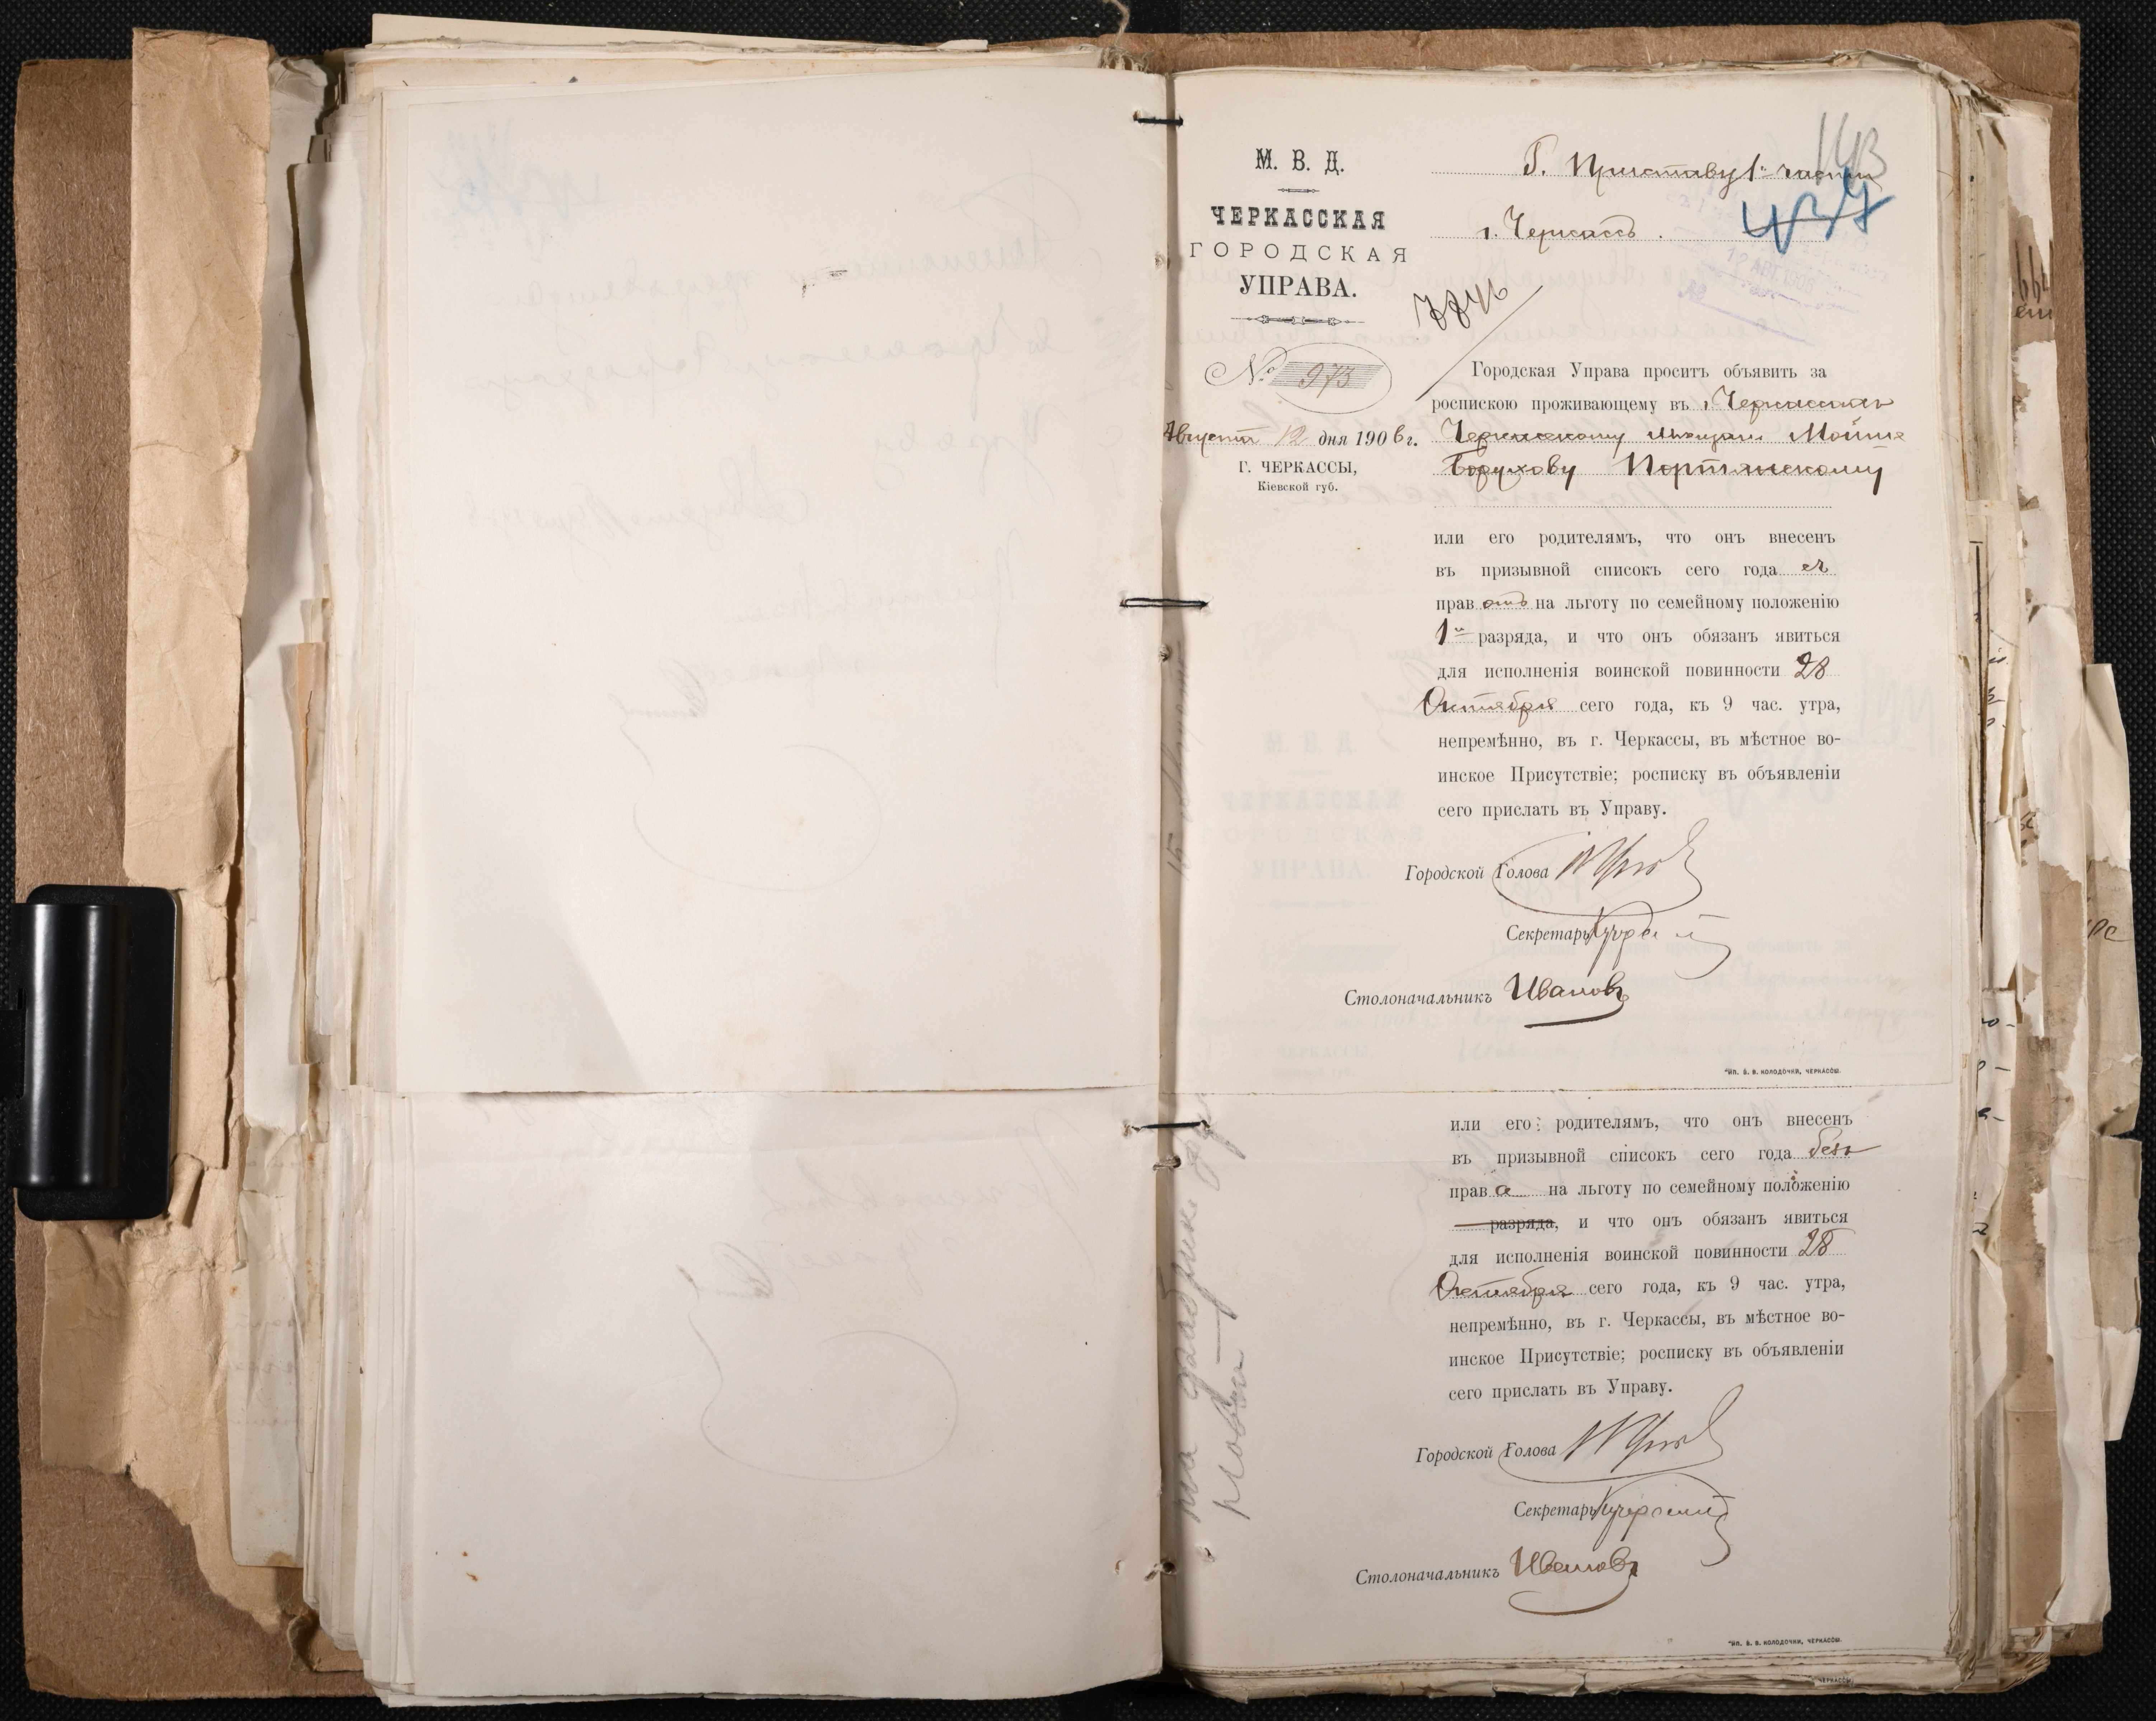 М. В. Д.
ЧЕРКАССКАЯ
ГОРОДСКАЯ
УПРАВА.
№ 973
Августа 12 дня 1906 г.
Г. ЧЕРКАССЫ,
Кіевской губ.
143
Г. Приставу 1й части
437
г. Черкассъ.
12 АВГ 1906
Городская Управа проситъ объявить за
роспискою проживающему въ г. Черкассахъ
Черкасскому мѣщан. Мойше
Борухову Портянскому
или его родителямъ, что онъ внесенъ
въ призывной списокъ сего года съ
прав омъ на льготу по семейному положенію
1го разряда, и что онъ обязанъ явиться
для исполненія воинской повинности 28
Октября сего года, къ 9 час. утра,
непремѣнно, въ г. Черкассы, въ мѣстное во-
инское Присутствіе; росписку въ объявленіи
сего прислать въ Управу.
Городской Голова
Секретарь
Столоначальникъ Ивановъ
ТИП. В. В. КОЛОДОЧКИ, ЧЕРКАССЫ.
или его родителямъ, что онъ внесенъ
въ призывной списокъ сего года безъ
прав а на льготу по семейному положенію
разряда, и что онъ обязанъ явиться
для исполненія воинской повинности 28
Октября сего года, къ 9 час. утра,
непремѣнно, въ г. Черкассы, въ мѣстное во-
инское Присутствіе; росписку въ объявленіи
сего прислать въ Управу.
Городской Голова
Секретарь
Столоначальникъ Ивановъ
ТИП. В. В. КОЛОДОЧКИ, ЧЕРКАССЫ.